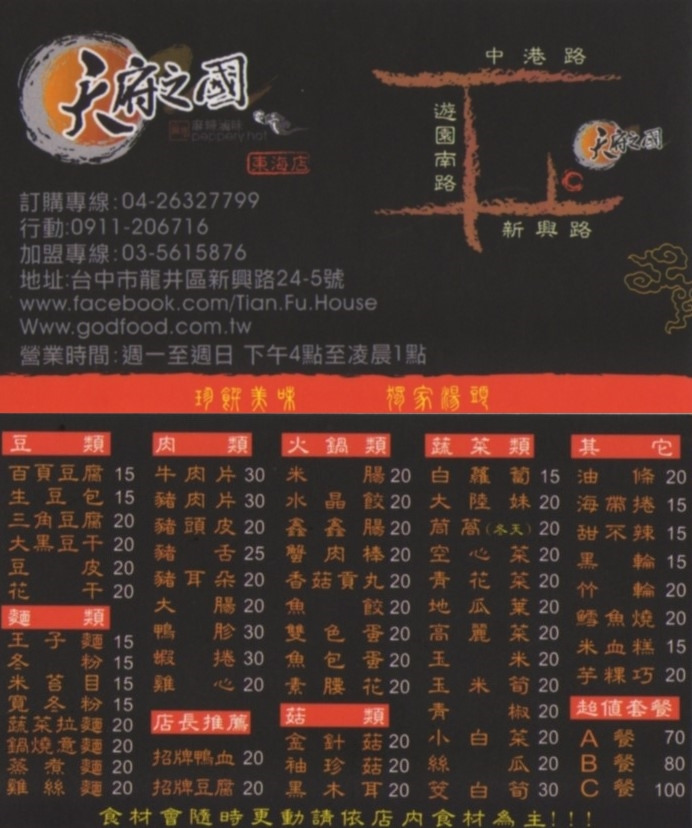 天府之國
麻辣滷味
peppery hot
東海店
中港路
遊園南路
天府之國
新興路
訂購專線:04-26327799
行動:0911-206716
加盟專線:03-5615876
地址:台中市龍井區新興路24-5號
www.facebook.com/Tian.Fu.House
Www.godfood.com.tw
營業時間:週一至週日 下午4點至凌晨1點
珍饌美味 獨家湯頭
豆類
百頁豆腐 15
生豆包 15
三角豆腐 20
大黑豆干 20
豆皮 20
花干 20
麵類
王子麵 15
冬粉 15
米苔目 15
寬冬粉 15
蔬菜拉麵 20
鍋燒意麵 20
蒸煮麵 20
雞絲麵 20
肉類
牛肉片 30
豬肉片 30
豬頭皮 20
豬舌 25
豬耳朵 20
大腸 20
鴨胗 30
蝦捲 30
雞心 20
店長推薦
招牌鴨血 20
招牌豆腐 20
火鍋類
米腸 20
水晶餃 20
鑫鑫腸 20
蟹肉棒 20
香菇貢丸 20
魚餃 20
雙色蛋 20
魚包蛋 20
素腰花 20
菇類
金針菇 20
袖珍菇 20
黑木耳 20
蔬菜類
白蘿蔔 15
大陸妹 20
茼蒿(冬天) 20
空心菜 20
青花菜 20
地瓜葉 20
高麗菜 20
玉米 20
玉米筍 20
青椒 20
小白菜 20
絲瓜 20
茭白筍 30
其它
油條 20
海帶捲 15
甜不辣 15
黑輪 15
竹輪 20
鱈魚燒 20
米血糕 15
芋粿巧 20
超值套餐
A餐 70
B餐 80
C餐 100
食材會隨時更動請依店內食材為主!!!